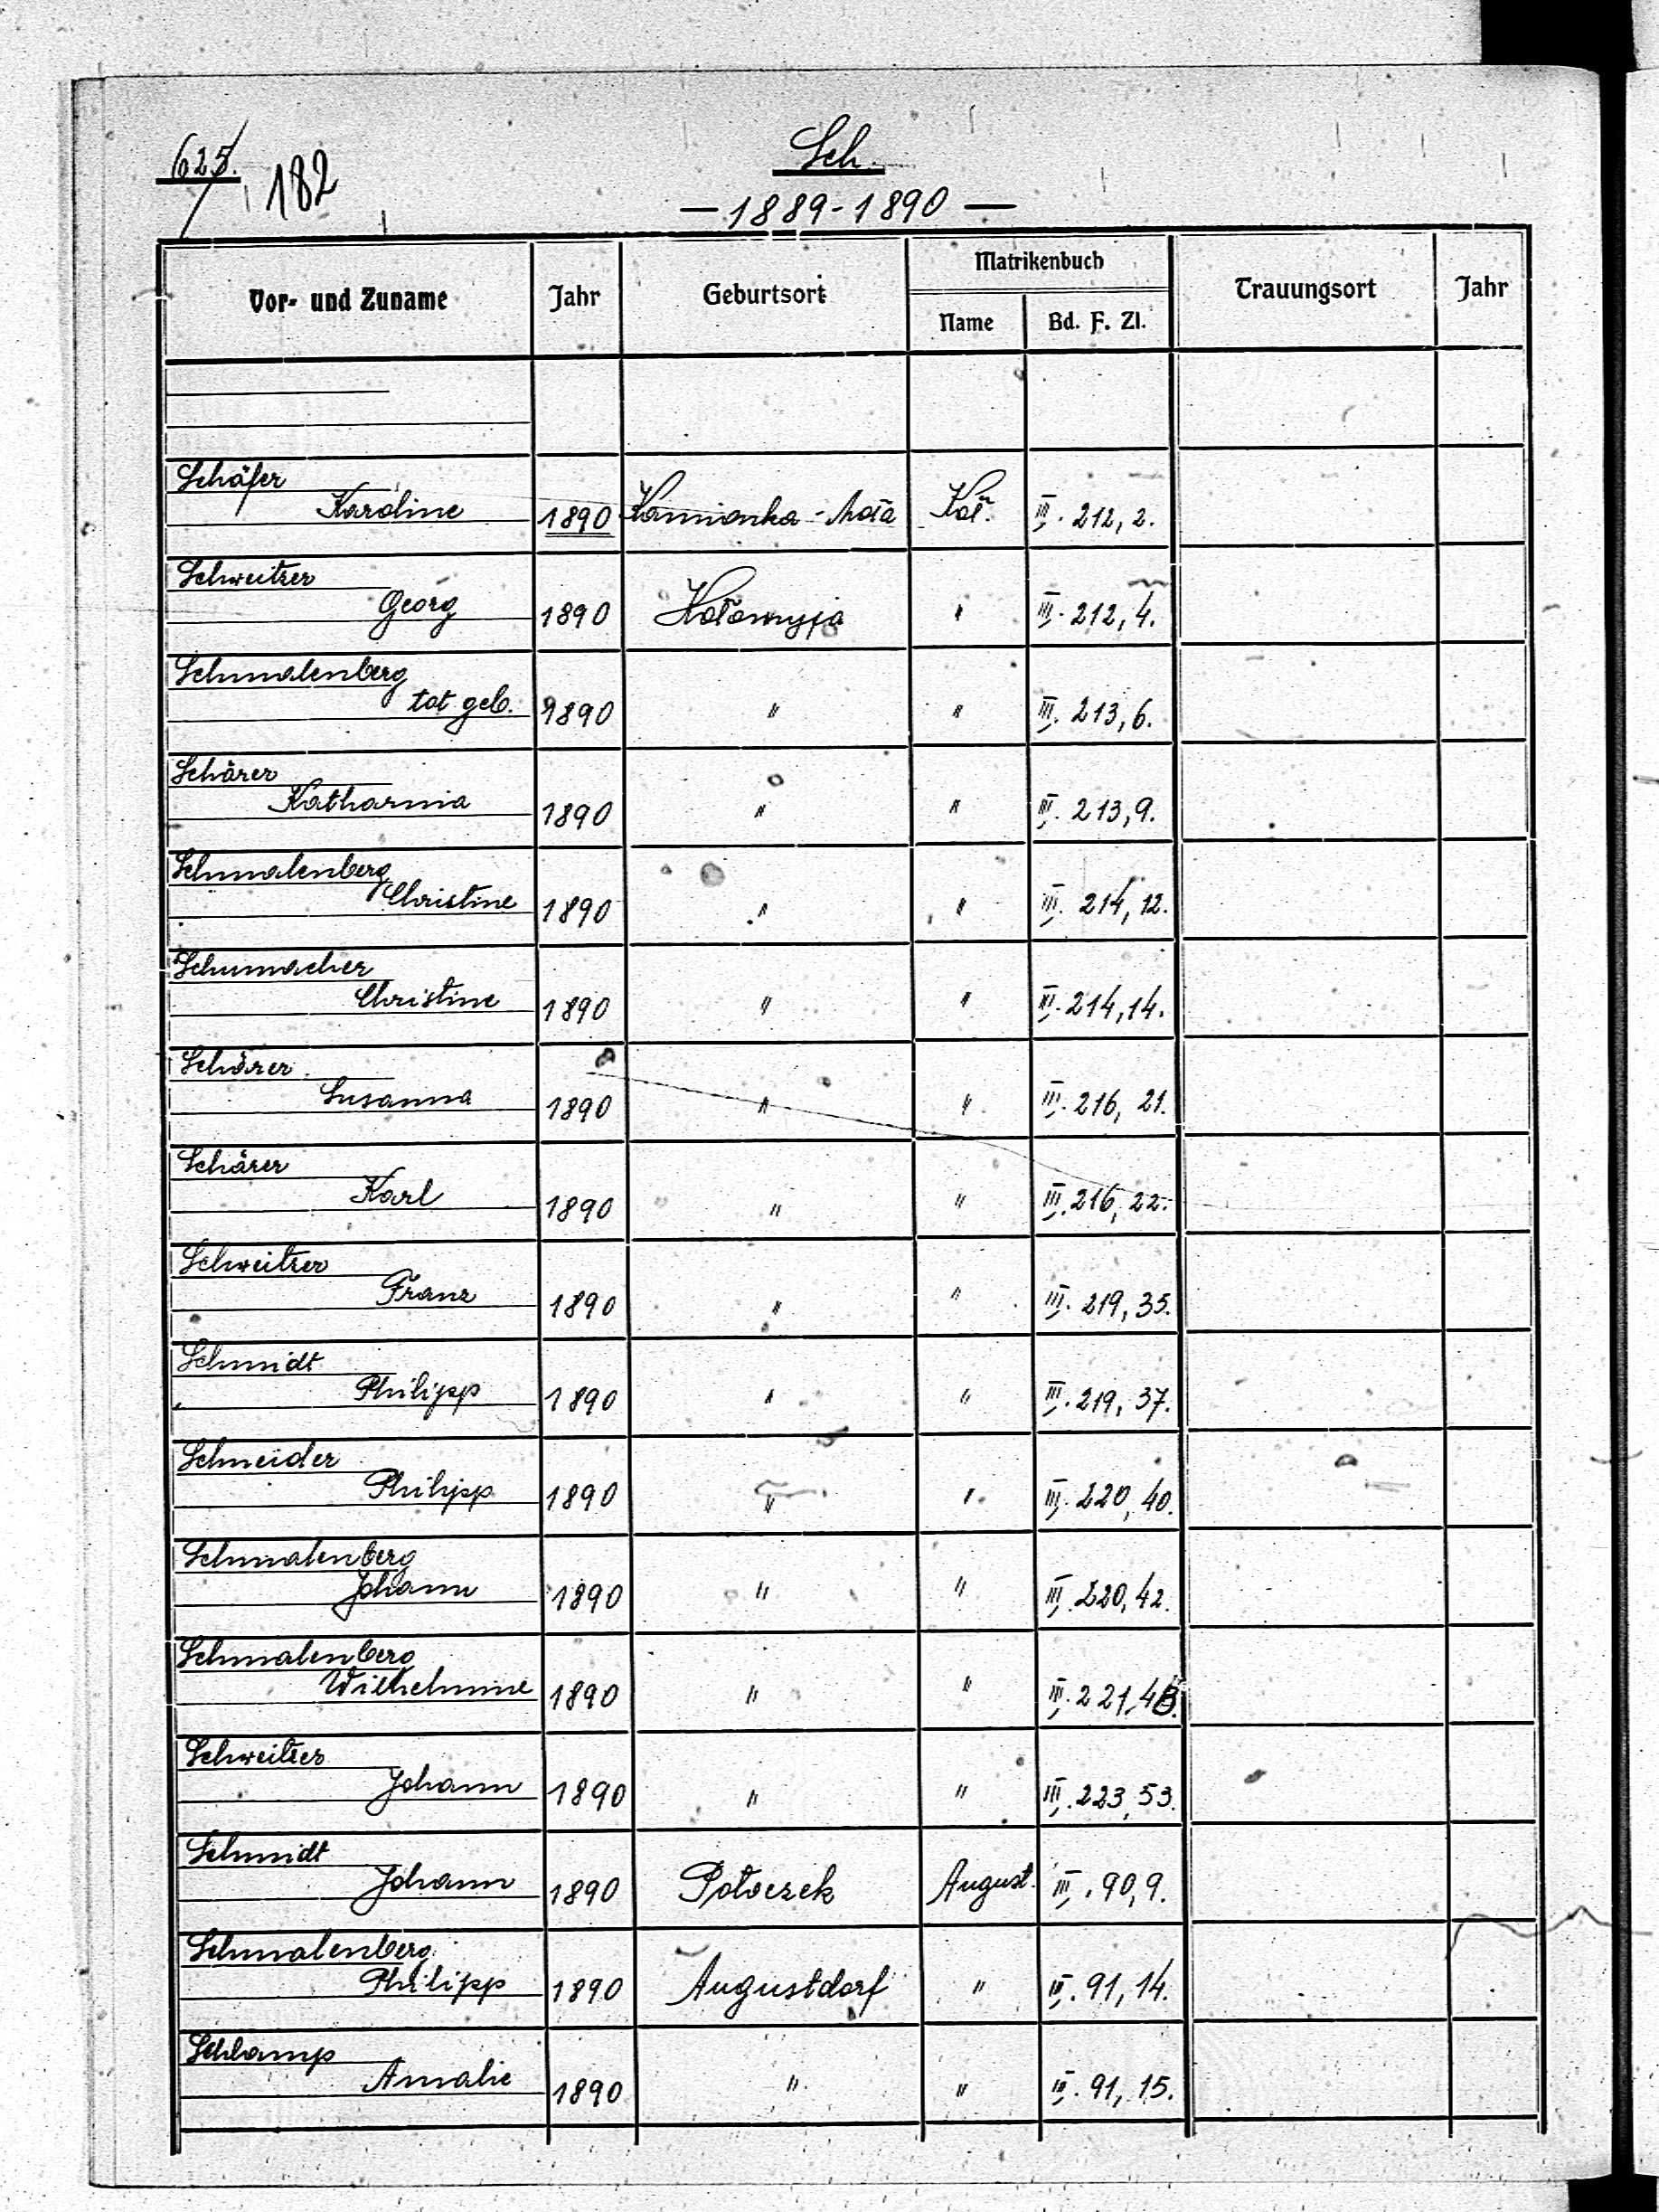 625. 182
Sch.
— 1889-1890 —
Vor- und Zuname Jahr Geburtsort Matrikenbuch Trauungsort Jahr
Name Bd. F. Zl.
Schäfer
Karoline 1890 Kamionka - Koł. III. 212, 2.
Schweitzer
Georg 1890 Kołomyja " III. 212, 4.
Schmalenberg
tot geb. 1890 " " III. 213, 6.
Schärer
Katharina 1890 " " III. 213, 9.
Schmalenberg
Christine 1890 " " III. 214, 12.
Schumacher
Christine 1890 " " III. 214, 14.
Schärer
Susanna 1890 " " III. 216, 21.
Schärer
Karl 1890 " " III. 216, 22.
Schweitzer
Franz 1890 " " III. 219, 35.
Schmidt
Philipp 1890 " " III. 219, 37.
Schneider
Philipp 1890 " " III. 220, 40.
Schmalenberg
Johann 1890 " " III. 220, 42.
Schmalenberg
Wilhelmine 1890 " " III. 221,
Schweitzer
Johann 1890 " " III. 223, 53.
Schmidt
Johann 1890 Potoczek August. III. 90, 9.
Schmalenberg
Philipp 1890 Augustdorf " III. 91, 14.
Schlamp
Amalie 1890 " " III. 91, 15.